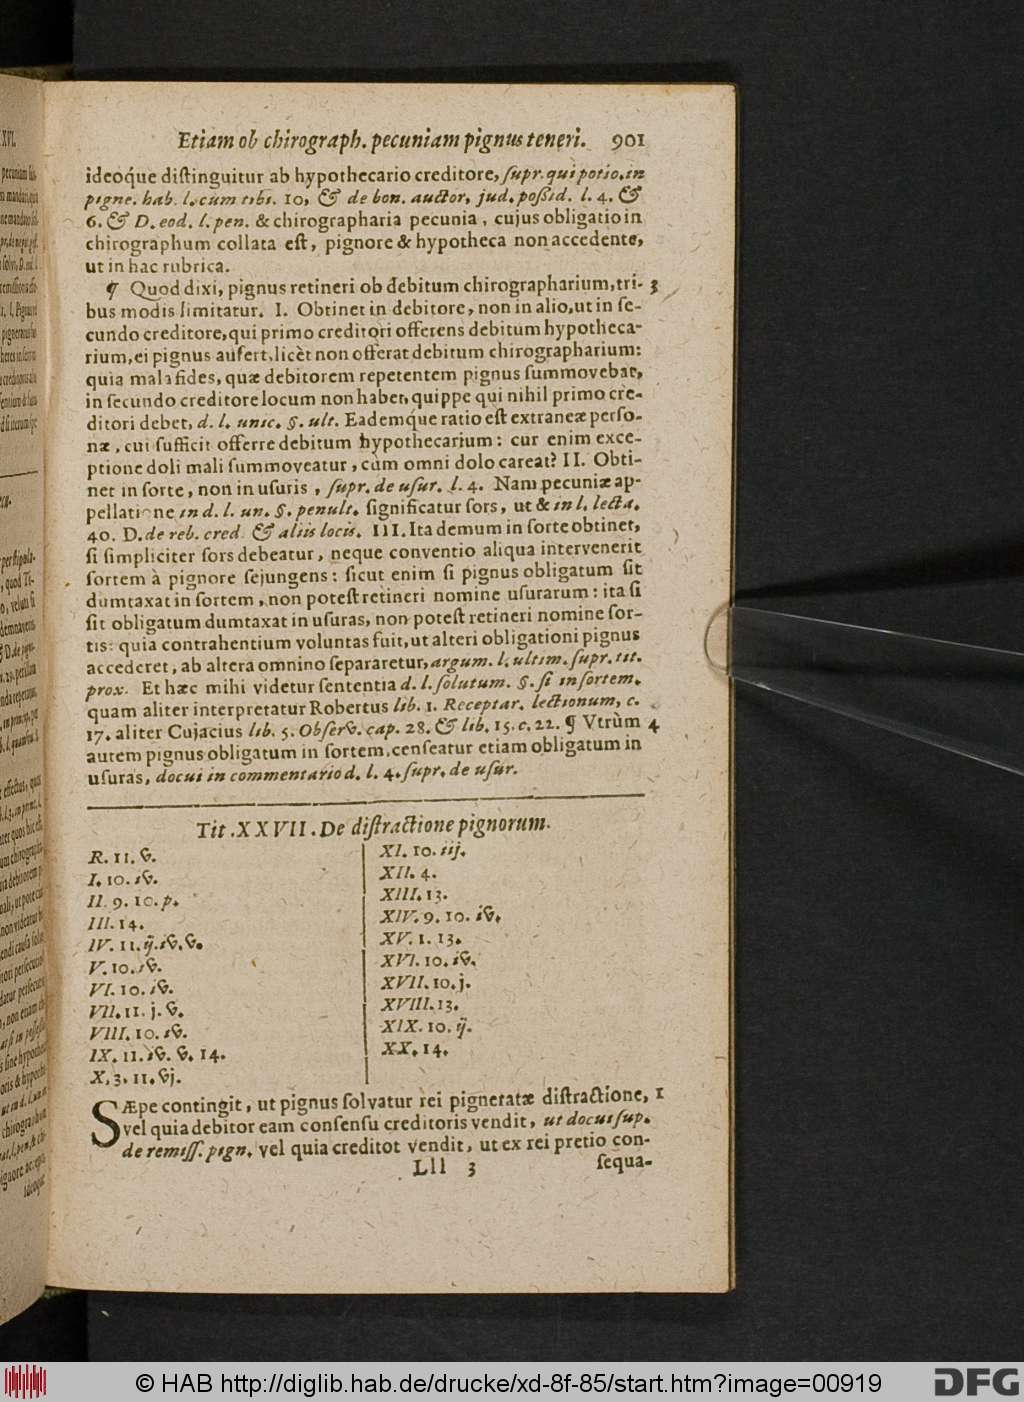 Etiam ob chirograph. pecuniam pignus teneri. 901
ideoque distinguitur ab hypothecario creditore, supr. qui potio. in
pigne. hab. l. cum tibi. 10, & de bon. auctor, jud. possid. l. 4. &
6. & D. eod. l. pen. & chirographaria pecunia, cujus obligatio in
chirographum collata est, pignore & hypotheca non accedente,
ut in hac rubrica.
¶ Quod dixi, pignus retineri ob debitum chirographarium, tri- 3
bus modis limitatur. I. Obtinet in debitore, non in alio, ut in se-
cundo creditore, qui primo creditori offerens debitum hypotheca-
rium, ei pignus aufert, licèt non offerat debitum chirographarium:
quia mala fides, quæ debitorem repetentem pignus summovebat,
in secundo creditore locum non habet, quippe qui nihil primo cre-
ditori debet, d. l. unic. §. ult. Eademque ratio est extraneæ perso-
næ, cui sufficit offerre debitum hypothecarium: cur enim exce-
ptione doli mali summoveatur, cùm omni dolo careat? II. Obti-
net in sorte, non in usuris, supr. de usur. l. 4. Nam pecuniæ ap-
pellatione in d. l. un. §. penult. significatur sors, ut & in l. lecta.
40. D. de reb. cred. & aliis locis. III. Ita demum in sorte obtinet,
si simpliciter sors debeatur, neque conventio aliqua intervenerit
sortem à pignore sejungens: sicut enim si pignus obligatum sit
dumtaxat in sortem, non potest retineri nomine usurarum: ita si
sit obligatum dumtaxat in usuras, non potest retineri nomine sor-
tis: quia contrahentium voluntas fuit, ut alteri obligationi pignus
accederet, ab altera omnino separaretur, argum. l. ultim. supr. tit.
prox. Et hæc mihi videtur sententia d. l. solutum. §. si in sortem.
quam aliter interpretatur Robertus lib. 1. Receptar. lectionum, c.
17. aliter Cujacius lib. 5. Observ. cap. 28. & lib. 15. c. 22. ¶ Vtrùm 4
autem pignus obligatum in sortem, censeatur etiam obligatum in
usuras, docui in commentario d. l. 4. supr. de usur.
Tit. XXVII. De distractione pignorum.
R. 11. v.
I. 10. iv.
II. 9. 10. p.
III. 14.
IV. 11. ij. iv. v.
V. 10. iv.
VI. 10. iv.
VII. 11. j. v.
VIII. 10. iv.
IX. 11. iv. v. 14.
X. 3. 11. vj.
XI. 10. iij.
XII. 4.
XIII. 13.
XIV. 9. 10. iv.
XV. 1. 13.
XVI. 10. iv.
XVII. 10. j.
XVIII. 13.
XIX. 10. ij.
XX. 14.
SÆpe contingit, ut pignus solvatur rei pigneratæ distractione, 1
vel quia debitor eam consensu creditoris vendit, ut docui sup.
de remiss. pign. vel quia creditot vendit, ut ex rei pretio con-
Lll 3 sequa-
© HAB http://diglib.hab.de/drucke/xd-8f-85/start.htm?image=00919
DFG